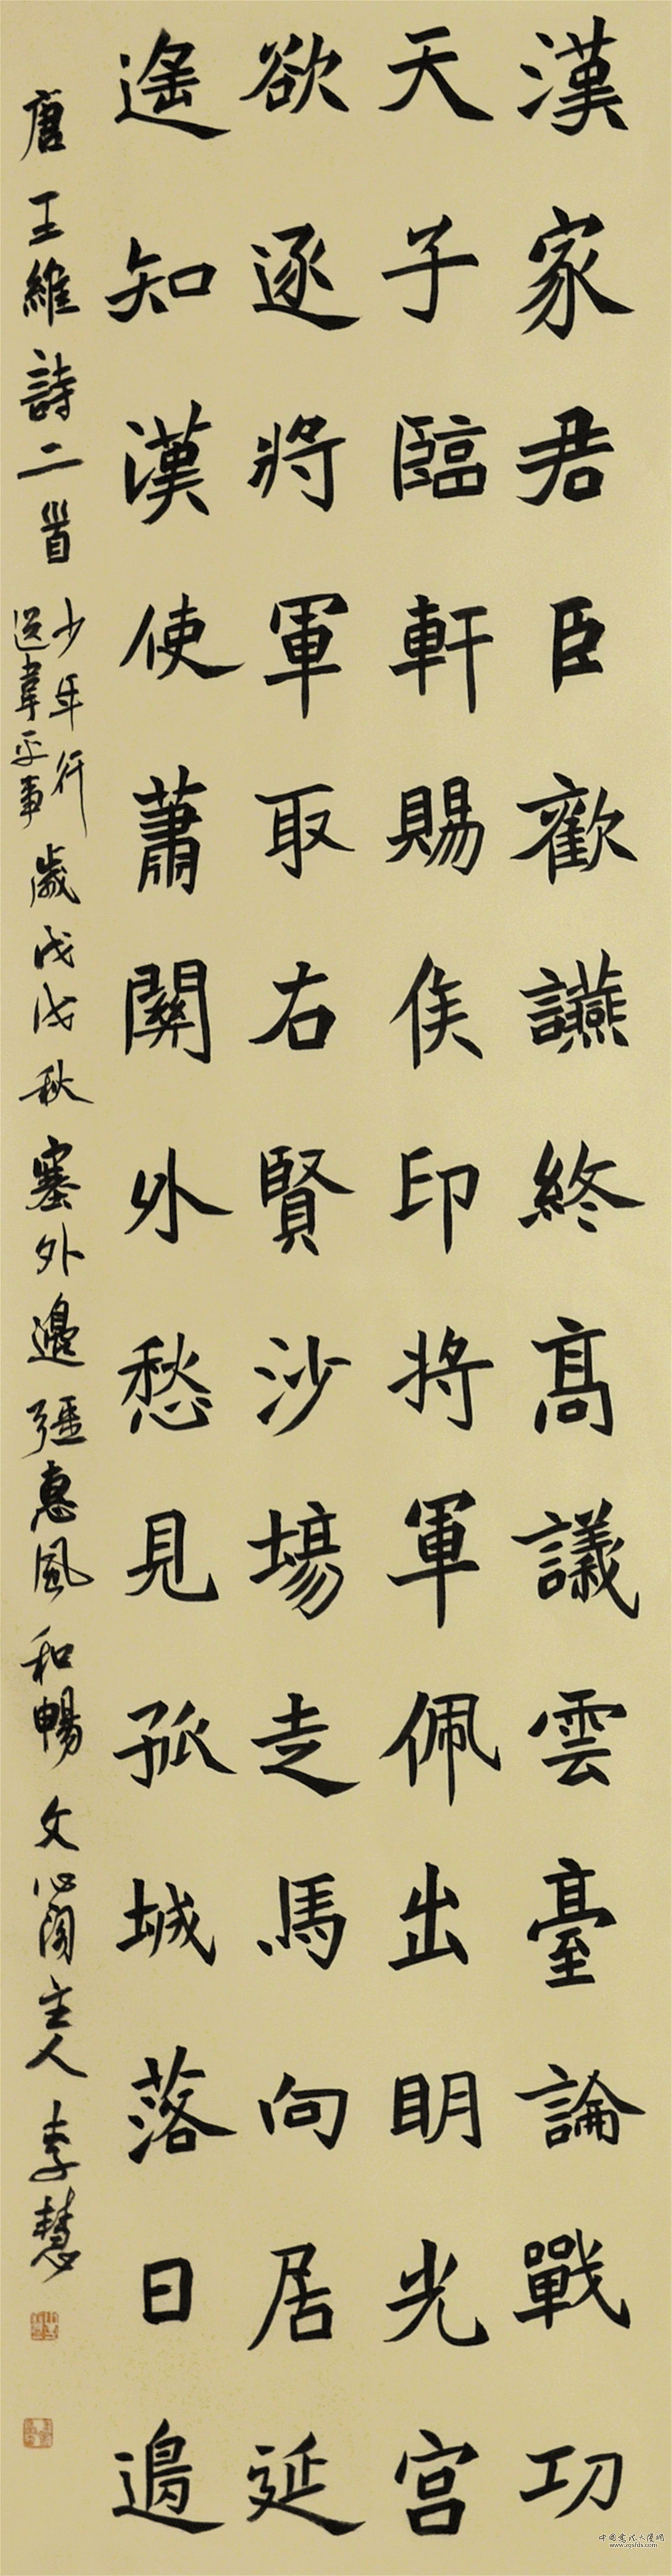 漢家君臣歡讌終高議雲臺論戰功
天子臨軒賜侯印將軍佩出明光宮
欲逐將軍取右賢沙場走馬向居延
遙知漢使蕭關外愁見孤城落日邊
唐王維詩二首
少年行
送韋平事
歲戊戌秋塞外邊疆惠風和暢文心閣主人李慧
中国书法大厦网
www.zgsfds.com